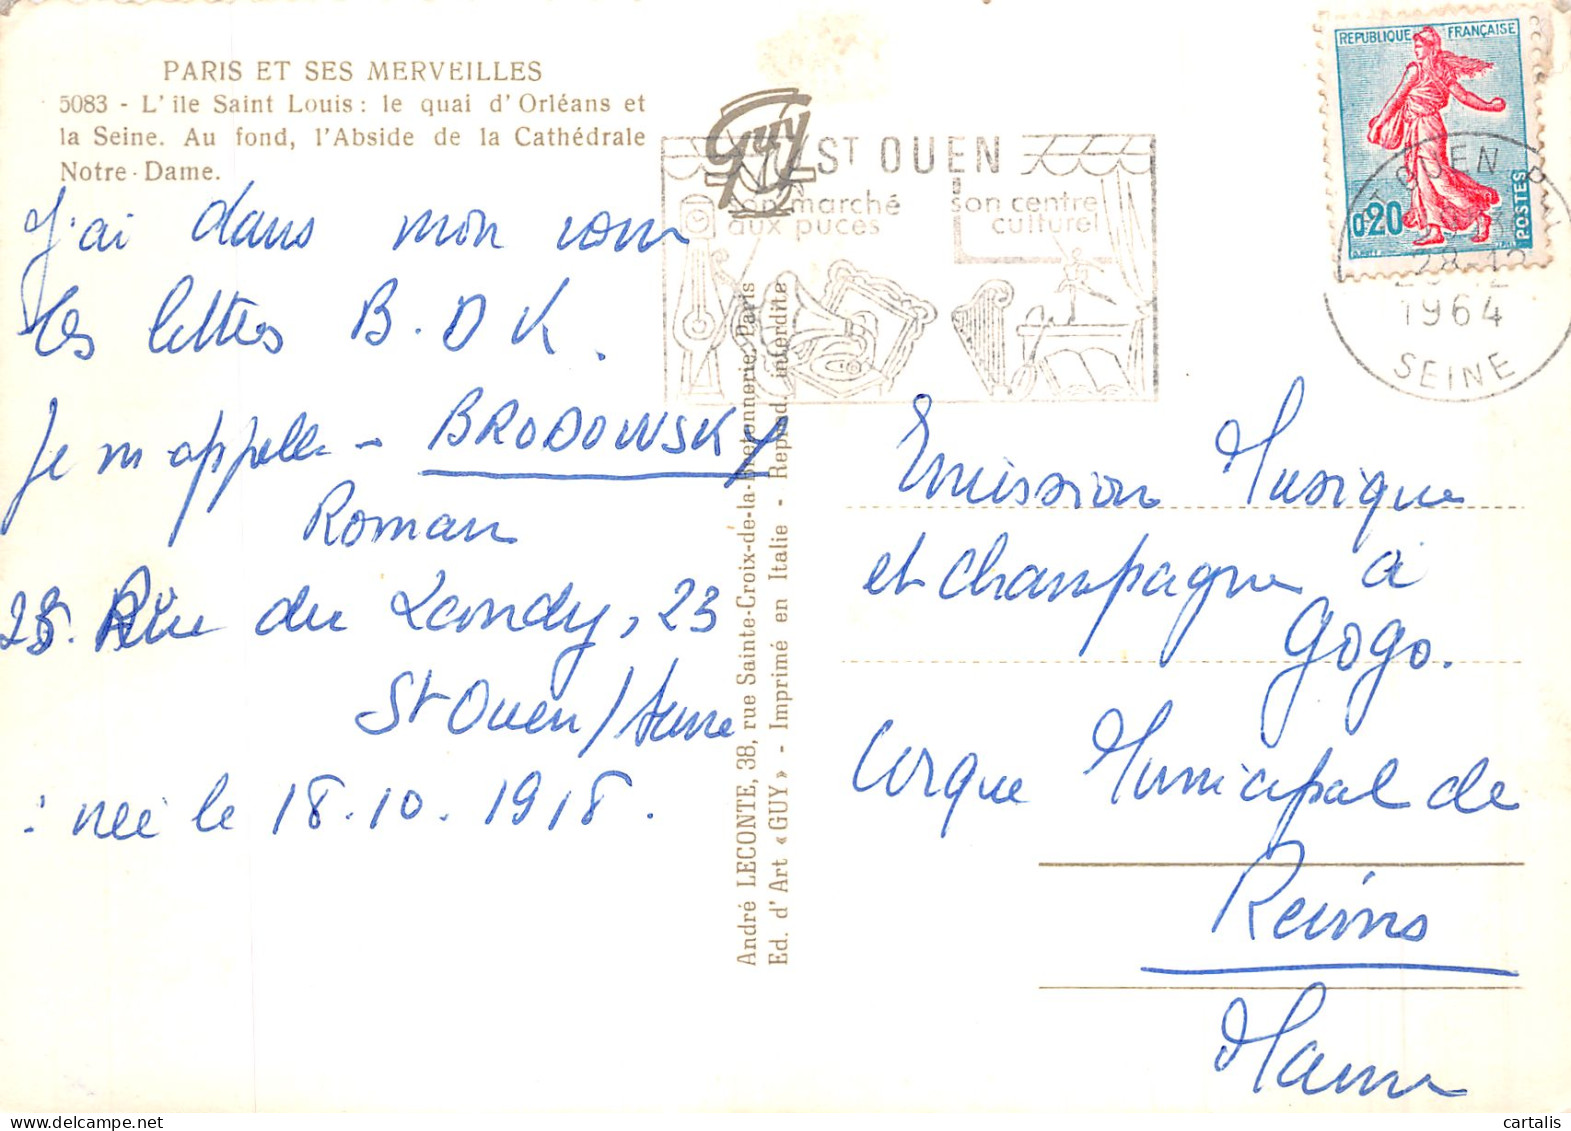 PARIS ET SES MERVEILLES
5083 - L'ile Saint Louis : le quai d'Orléans et
la Seine. Au fond, l'Abside de la Cathédrale
Notre-Dame.
J'ai dans mon nom
les lettres B.D K.
Je m'appelle - BRODOWSKY
Roman
25. Rue du Landy, 23
St Ouen/Seine
: née le 18.10.1918.
André LECONTE, 38, rue Sainte-Croix-de-la-Bretonnerie, Paris
Ed. d'Art «GUY» - Imprimé en Italie - Reprod. interdite
Guy
ST OUEN
son marché
aux puces
son centre
culturel
REPUBLIQUE FRANÇAISE
0,20
POSTES
ST OUEN
28-12
1964
SEINE
Emission Musique
et champagne a
gogo.
Cirque Municipal de
Reims
Marne
cartalis